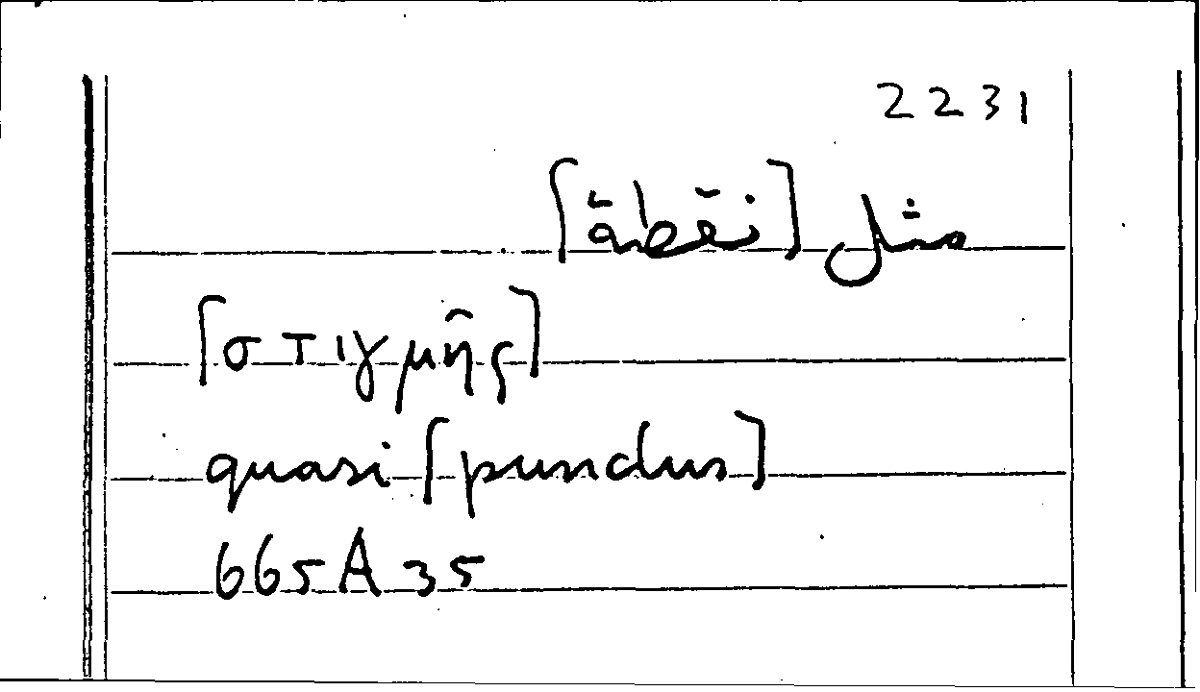 2231
مثل [نقطة]
[στιγμῆς]
quasi [punctus]
665A35